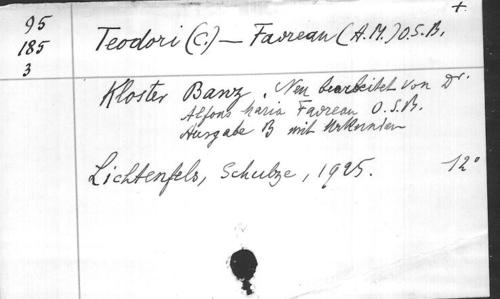 +
95
185
3
Teodori (C.) — Favreau (A.M.) O.S.B.
Kloster Banz. Neu bearbeitet von Dr.
Alfons Maria Favreau O.S.B.
Ausgabe B mit Urkunden
Lichtenfels, Schulze, 1925. 12°